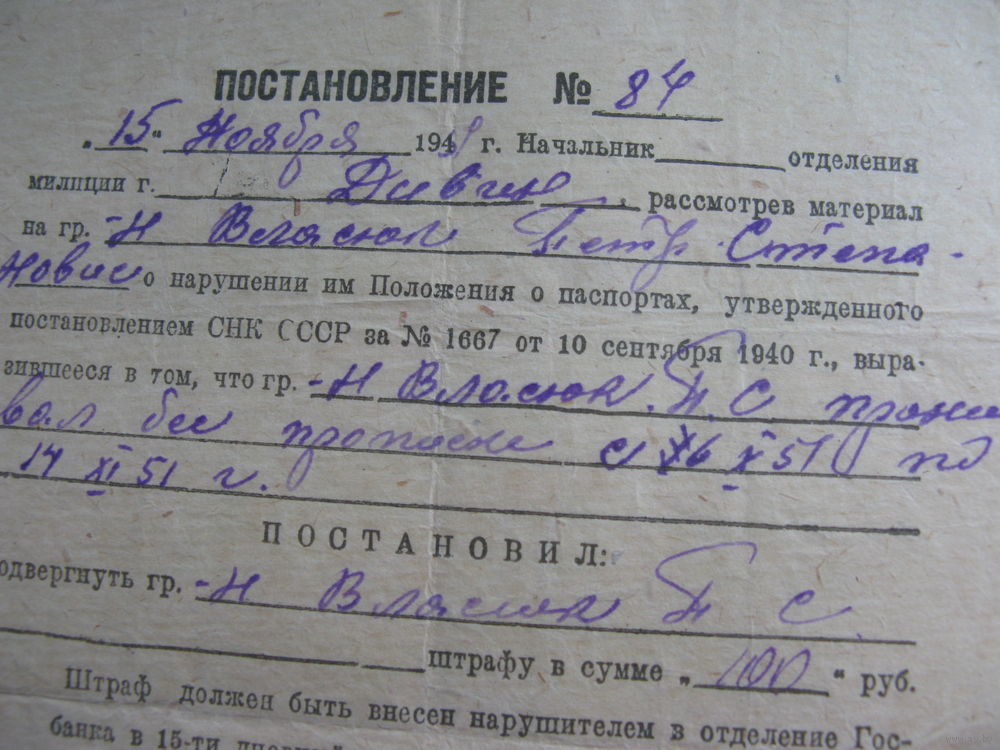 ПОСТАНОВЛЕНИЕ № 84
„15“ Ноября 1941 г. Начальник отделения
милиции г. Дивин, рассмотрев материал
на гр. -н Власюк Петр Степа-
нович о нарушении им Положения о паспортах, утвержденного
постановлением СНК СССР за № 1667 от 10 сентября 1940 г., выра-
зившееся в том, что гр. -н Власюк П. С прожи
вал без прописки с 16 X 51 по
14 XI 51 г.
ПОСТАНОВИЛ:
одвергнуть гр. -н Власюк П С
штрафу в сумме „100“ руб.
Штраф должен быть внесен нарушителем в отделение Гос-
банка в 15-ти